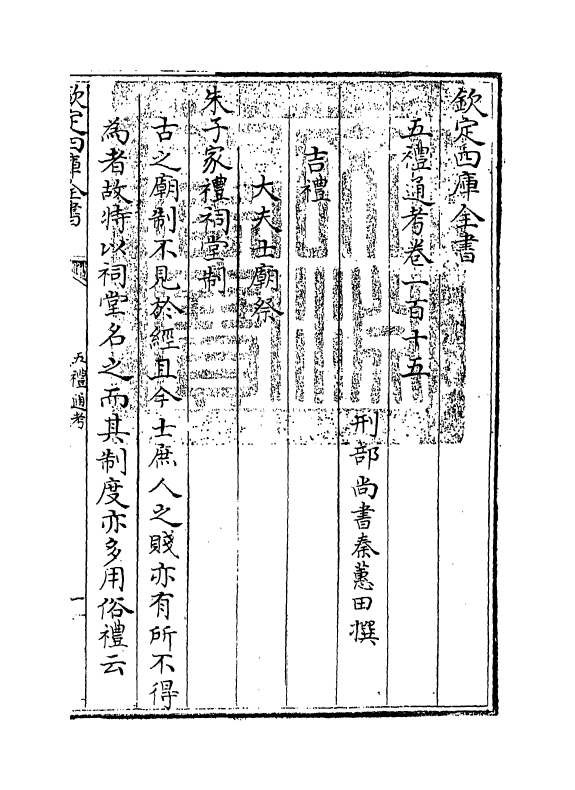 欽定四庫全書
五禮通考卷一百十五
刑部尚書秦蕙田撰
吉禮
大夫士廟祭
朱子家禮祠堂制
古之廟制不見於經且今士庶人之賤亦有所不得
為者故特以祠堂名之而其制度亦多用俗禮云
欽定四庫全書
五禮通考
一